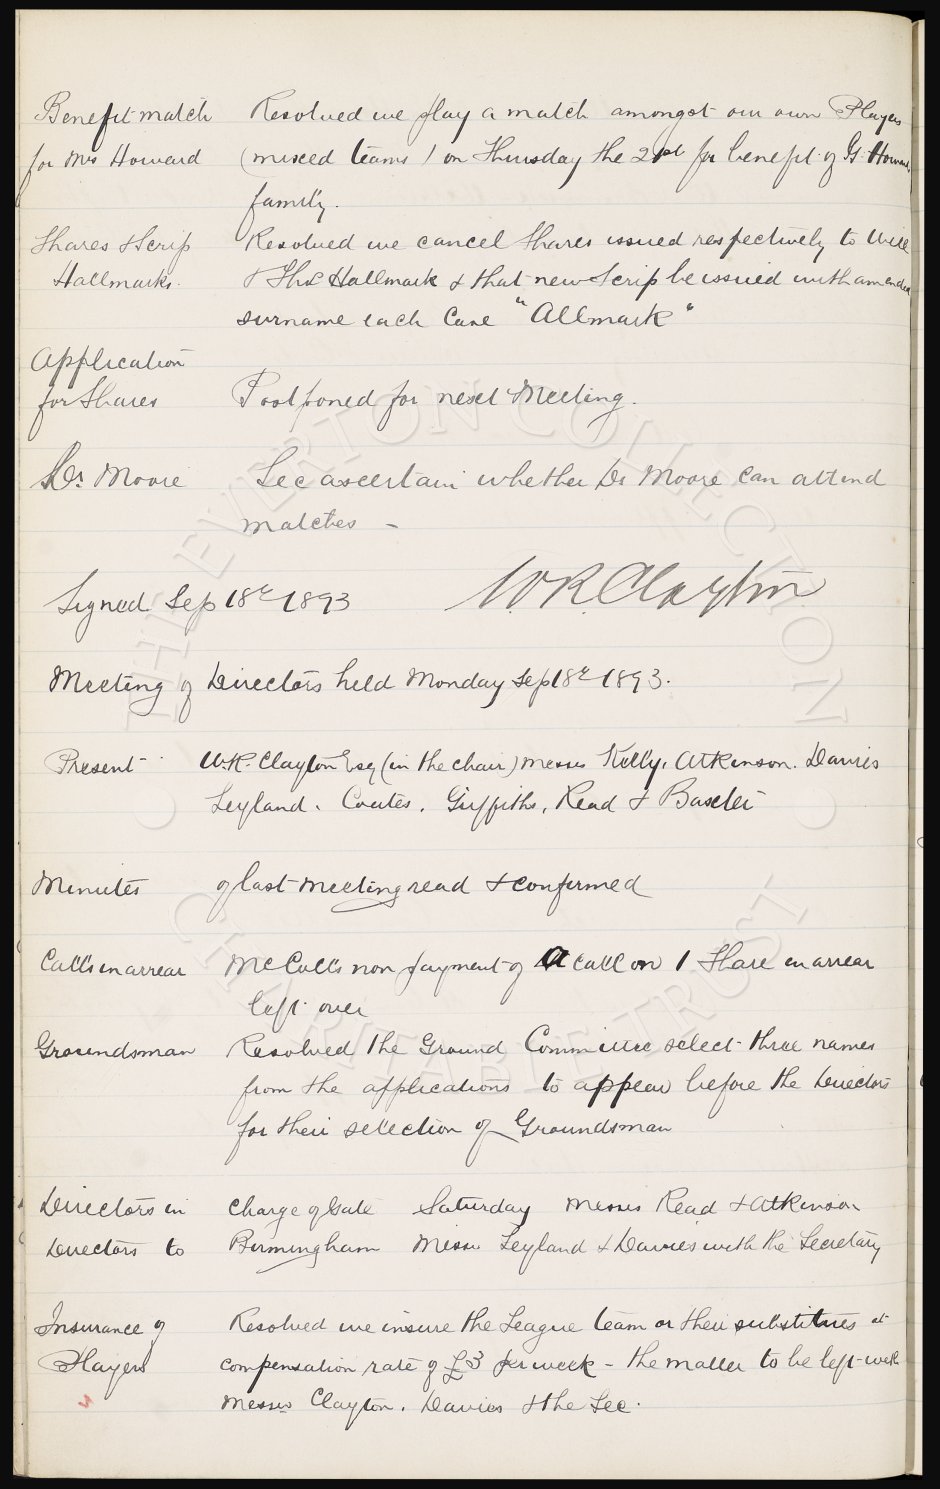 Benefit match Resolved we play a match amongst our own Players
for Mrs Howard (mixed teams) on Thursday the 21st for benefit of G. Howard
family.
Shares & Scrip Resolved we cancel shares issued respectively to Will
Hallmarks. & Thos Hallmark & that new Scrip be issued with amended
surname each case "Allmark"
Application
for Shares Postponed for next Meeting.
Dr Moore Sec ascertain whether Dr Moore can attend
matches –
Signed Sep 18th 1893 W.R. Clayton
Meeting of Directors held Monday Sep 18th 1893.
Present W.R. Clayton Esq (in the chair) Messrs Kelly, Atkinson. Davies
Leyland. Coates. Griffiths, Read & Baxter
Minutes of last meeting read & confirmed
Calls in arrear McCall's non payment of a call on 1 Share in arrear
left over
Groundsman Resolved the Ground Committee select three names
from the applications to appear before the Directors
for their selection of Groundsman
Directors in charge of Gate Saturday Messrs Read & Atkinson
Directors to Birmingham Messrs Leyland & Davies with the Secretary
Insurance of Resolved we insure the League team or their substitutes at
Players compensation rate of £3 per week – the matter to be left with
Messrs Clayton. Davies & the Sec.
THE EVERTON COLLECTION
CHARITABLE TRUST